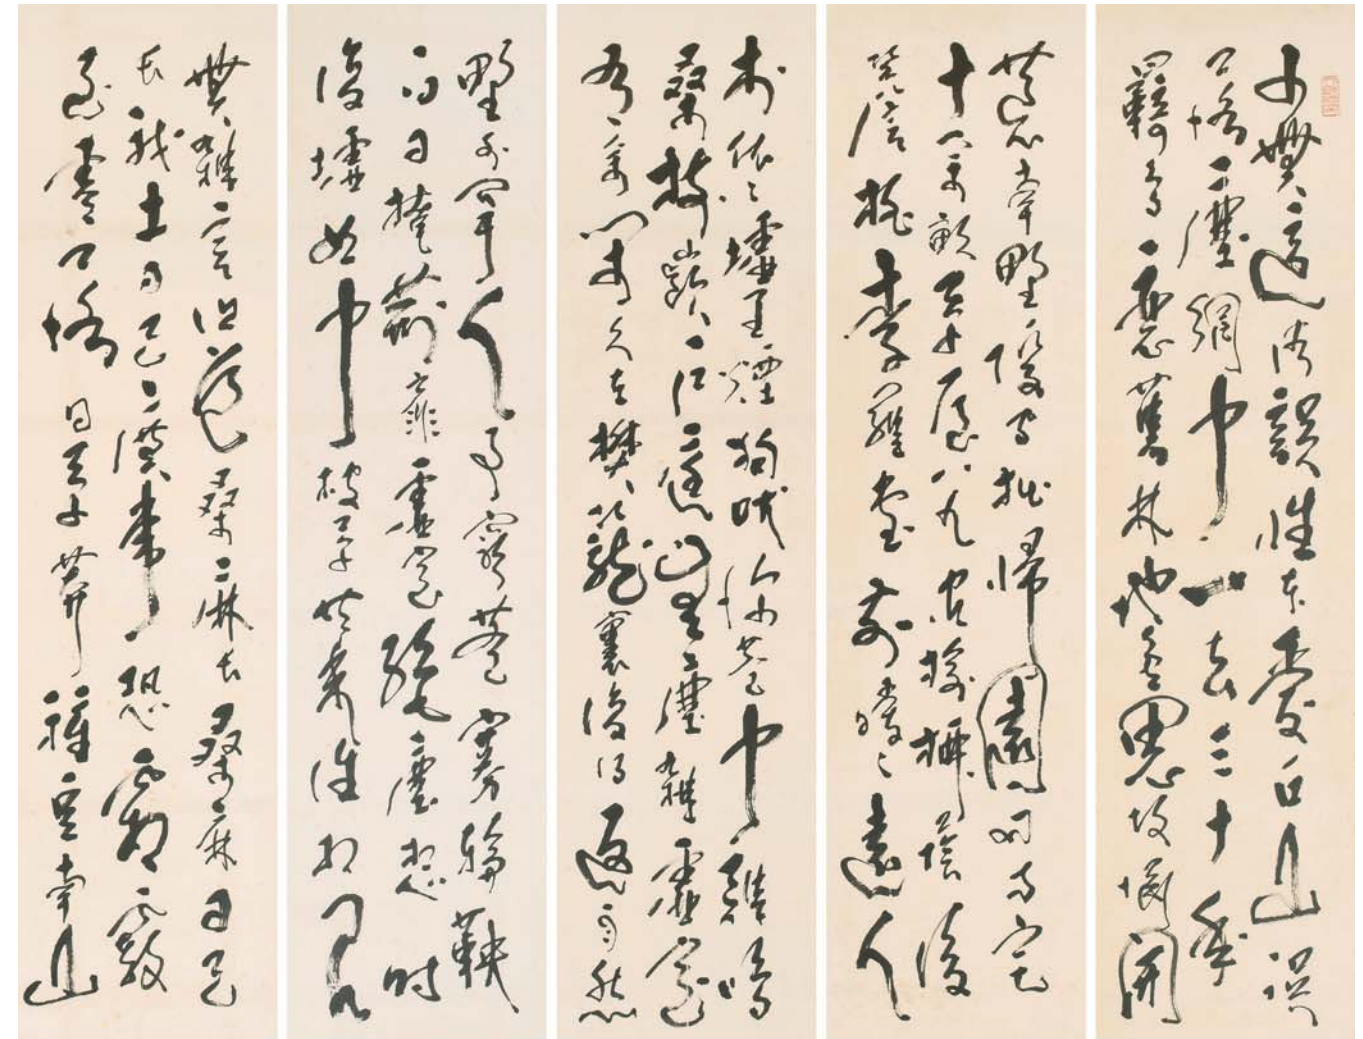 少無適俗韻性本愛丘山誤
落塵網中一去三十年
羈鳥戀舊林池魚思故淵開
荒南野際守拙歸園田方宅
十餘畝草屋八九間榆柳蔭後
簷桃李羅堂前曖〻遠人
村依〻墟里煙狗吠深巷中雞鳴
桑樹巔戶庭無塵雜虛室
有餘閒久在樊籠裏復得返自然
野外罕人事窮巷寡輪鞅
白日掩荊扉虛室絕塵想時
復墟曲中披草共來往相見
無雜言但道桑麻長桑麻日已
長我土日已廣常恐霜霰
至零落同草莽種豆南山